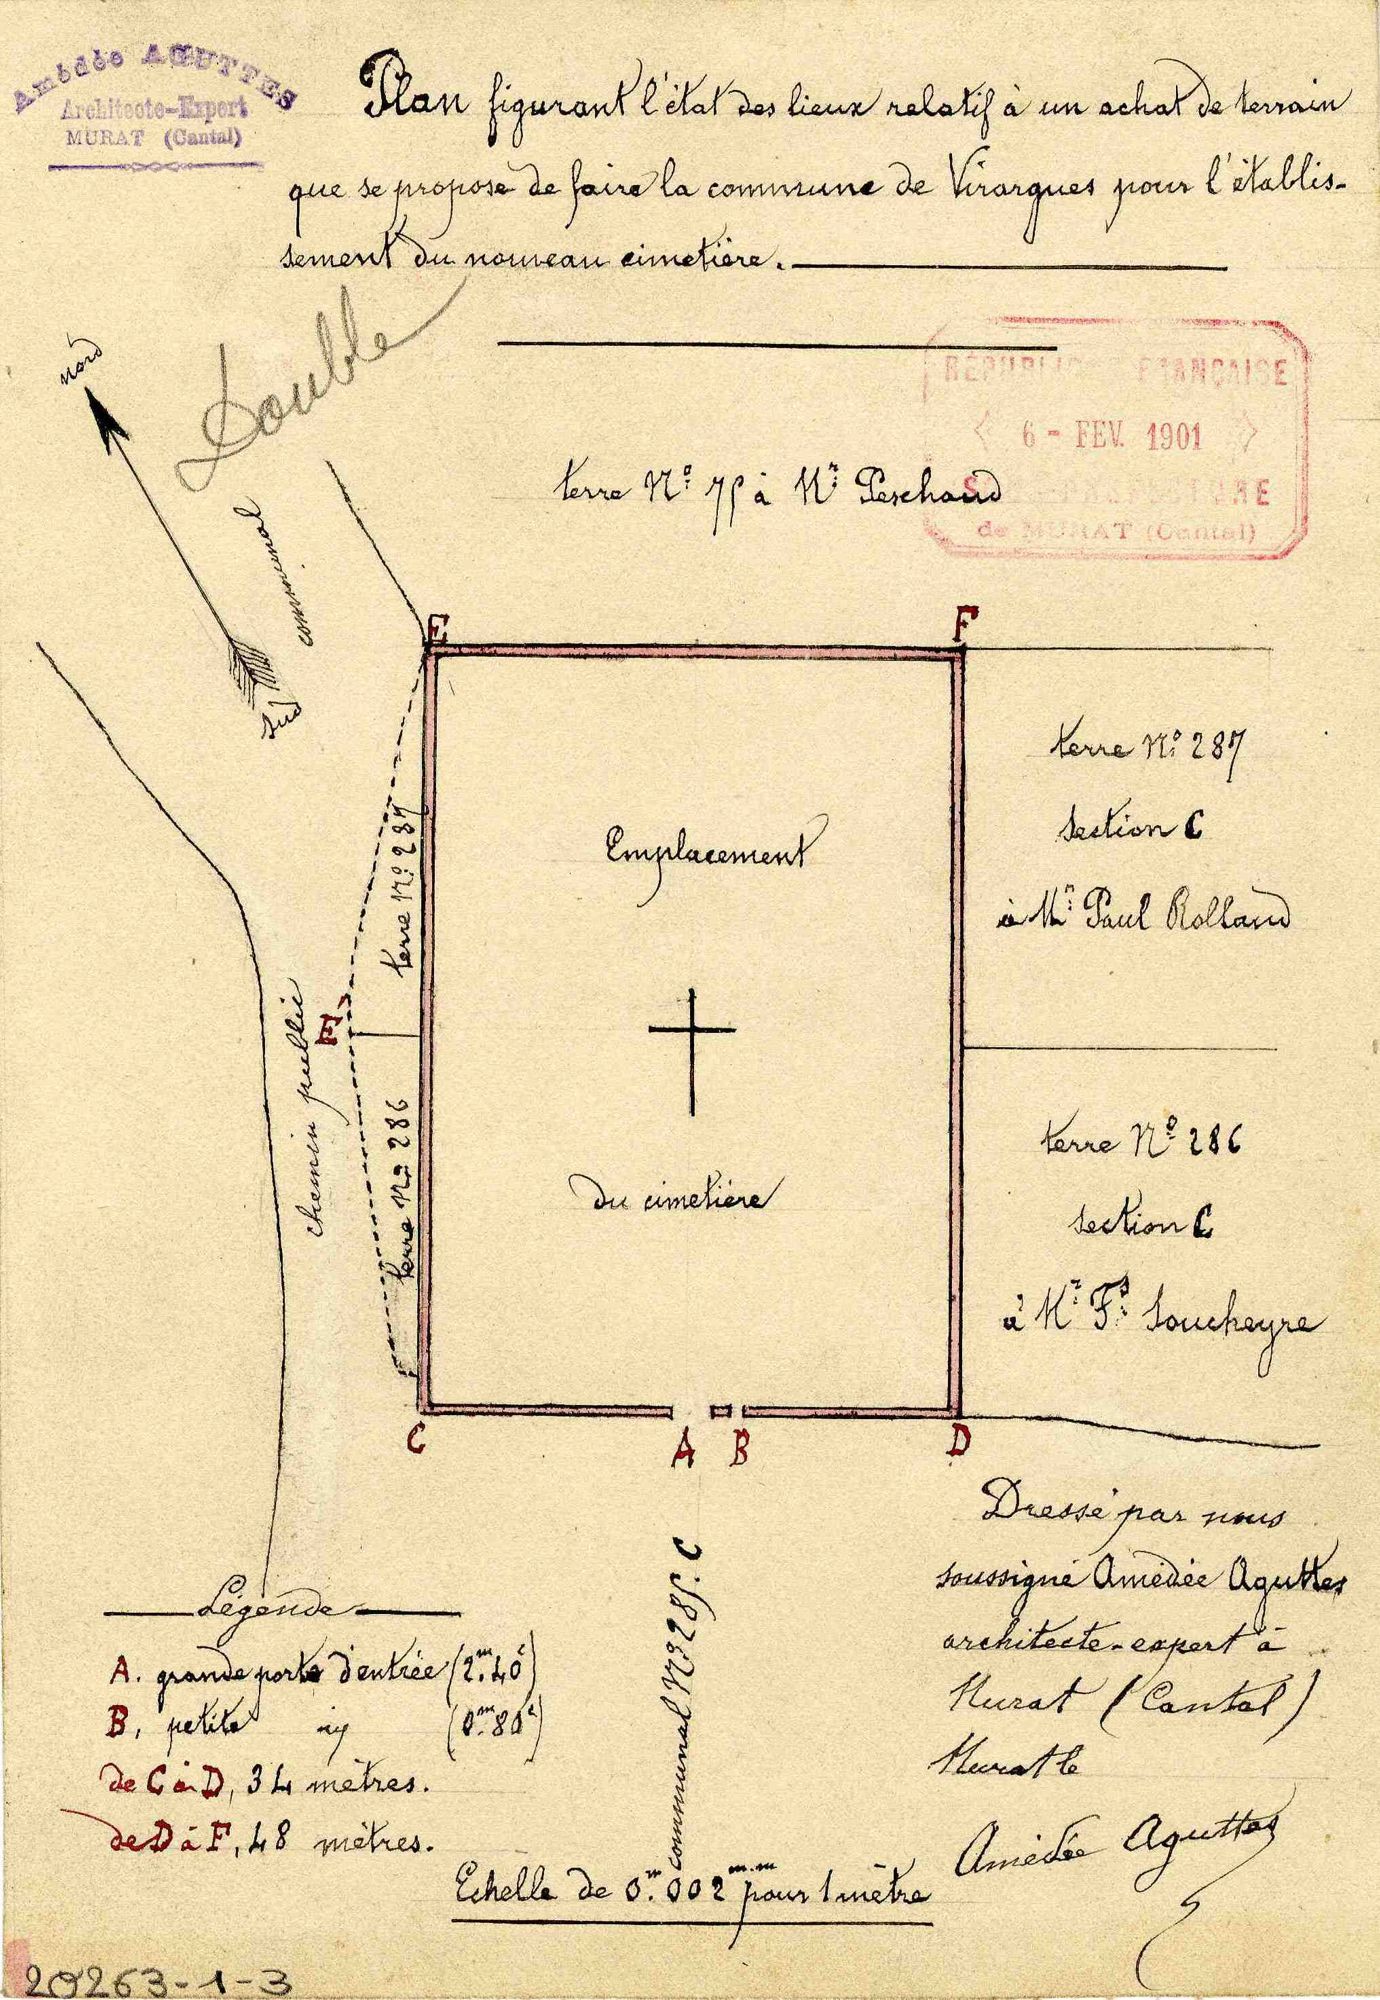 Amédée AGUTTES
Architecte-Expert
MURAT (Cantal)
Plan figurant l'état des lieux relatif à un achat de terrain
que se propose de faire la commune de Virargues pour l'établis-
sement du nouveau cimetière.
Double
nord
sud
communal
RÉPUBLIQUE FRANÇAISE
6 - FEV. 1901
de MURAT (Cantal)
terre N° à Mr Peschaud
E
F
terre N° 287
section C
à Mr Paul Rolland
terre N° 287
Emplacement
E'
chemin public
terre N° 286
du cimetière
terre N° 286
section C
à Mr Fs Soucheyre
C
A
B
D
communal N° 285. C
Légende
A. grande porte d'entrée (2m.40c)
B, petite (0m.80c)
de C à D, 34 mètres.
de D à F, 48 mètres.
Echelle de 0m.002m.m pour 1 mètre
Dressé par nous
soussigné Amédée Aguttes
architecte-expert à
Murat (Cantal)
Murat le
Amédée Aguttes
20263-1-3